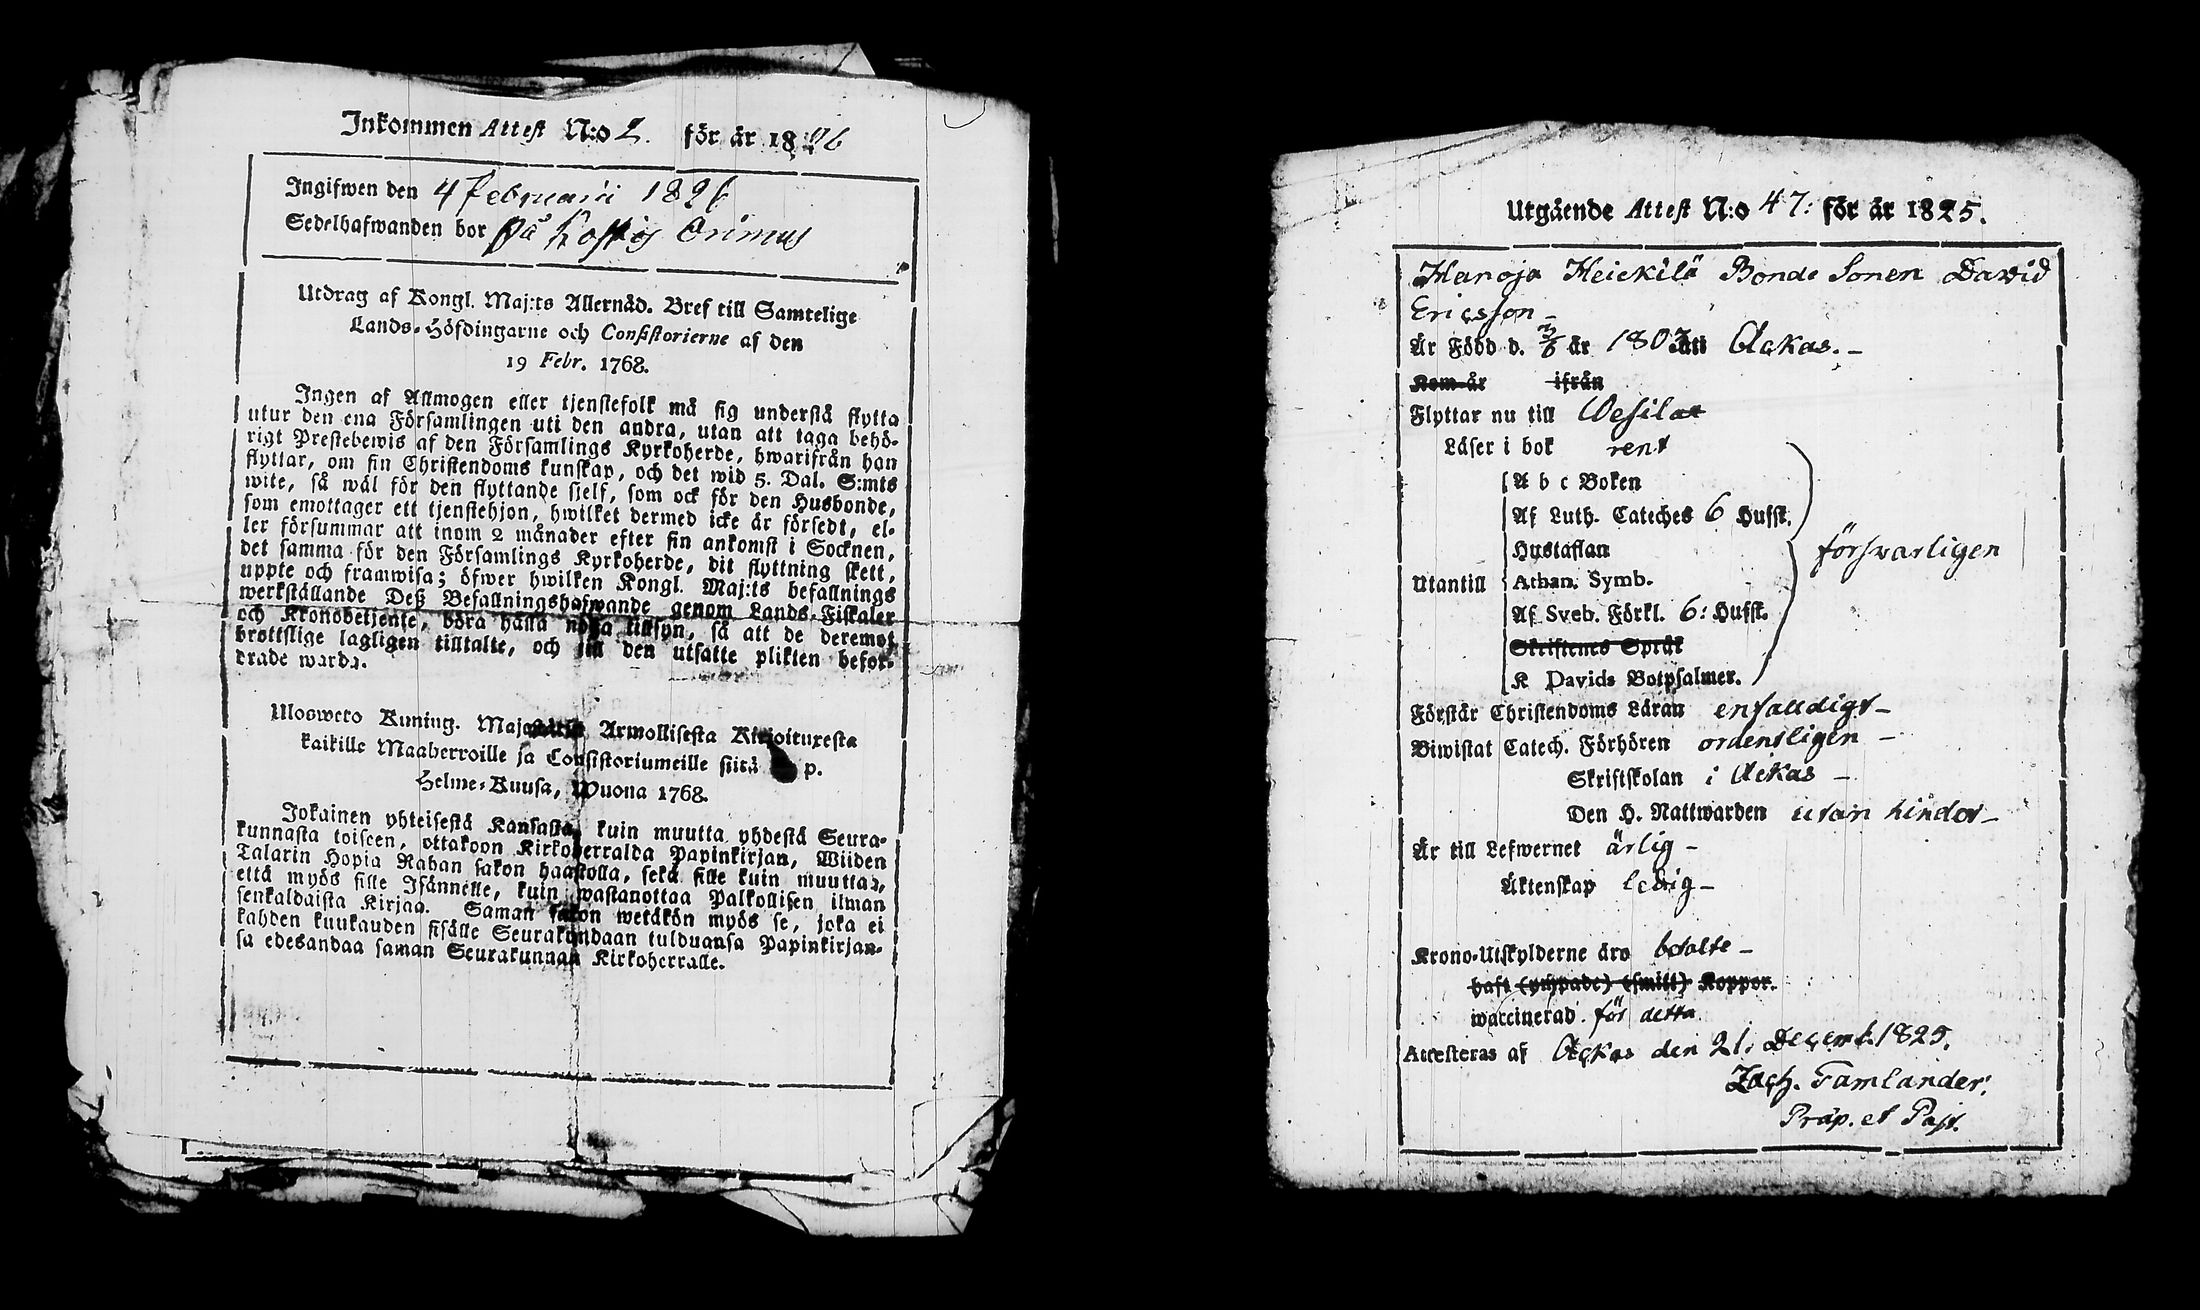 Inkommen Attest N:o 2. för år 1826
Ingifwen den 4 Februarii 1826
Sedelhafwanden bor på
Utdrag af Kongl. Maj:ts Allernåd. Bref till Samtelige
Lands-Höfdingarne och Consistorierne af den
19 Febr. 1768.
Ingen af Allmogen eller tjenstefolk må sig understå flytta
utur den ena Församlingen uti den andra, utan att taga behö-
rigt Prestebewis af den Församlings Kyrkoherde, hwarifrån han
flyttar, om sin Christendoms kunskap, och det wid 5. Dal. S:mts
wite, så wäl för den flyttande sjelf, som ock för den Husbonde,
som emottager ett tjenstehjon, hwilket dermed icke är försedt, el-
ler försummar att inom 2 månader efter sin ankomst i Socknen,
det samma för den Församlings Kyrkoherde, dit flyttning skett,
uppte och framwisa; öfwer hwilken Kongl. Maj:ts befallnings
werkställande Deß Befallningshafwande genom Lands-Fiskaler
och Kronobetjente, böra hålla noga tillsyn, så att de deremot
brottslige lagligen tilltalte, och till den utsatte plikten befor-
drade warda.
Ulosweto Kuning. Majestätin Armollisesta Kirjoituxesta
kaikille Maaherroille ja Consistoriumeille siitä p.
Helme-Kuusa, Wuona 1768.
Jokainen yhteisestä Kansasta, kuin muutta yhdestä Seura-
kunnasta toiseen, ottakoon Kirkoherralda Papinkirjan, Wiiden
Talarin Hopia Rahan sakon haastolla, sekä sille kuin muuttaa,
että myös sille Isännelle, kuin wastanottaa Palkollisen ilman
senkaldaista Kirjaa. Saman sakon wetäkön myös se, joka ei
kahden kuukauden sisälle Seurakundaan tulduansa Papinkirjan-
sa edesandaa saman Seurakunnan Kirkoherralle.
Utgående Attest N:o 47: för år 1825.
Hanoja Heickilä Bonde Sonen David
Ericsson
Är Född d. år 1803 uti Ackas.
Kom år ifrån
Flyttar nu till Wesilax
Läser i bok rent
A b c Boken
Af Luth. Cateches 6 Hufst.
Hustaflan
Utantill Athan. Symb.
Af Sveb. Förkl. 6: Hufst.
Skriftenes Språk
K Davids Botpsalmer.
försvarligen
Förstår Christendoms Läran enfalldigt
Biwistat Catech. Förhören ordentligen
Skriftskolan i Ackas
Den H. Nattwarden utan hinder
Är till Lefwernet ärlig
Äktenskap ledig
Krono-Utskylderne äro betalte
haft (ympade) (smitt) Koppor.
waccinerad för detta
Attesteras af Ackas den 21. Decemb. 1825.
Zach. Tamlander.
Præp. et Past.